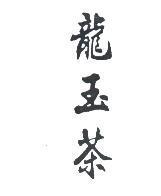 龍玉茶